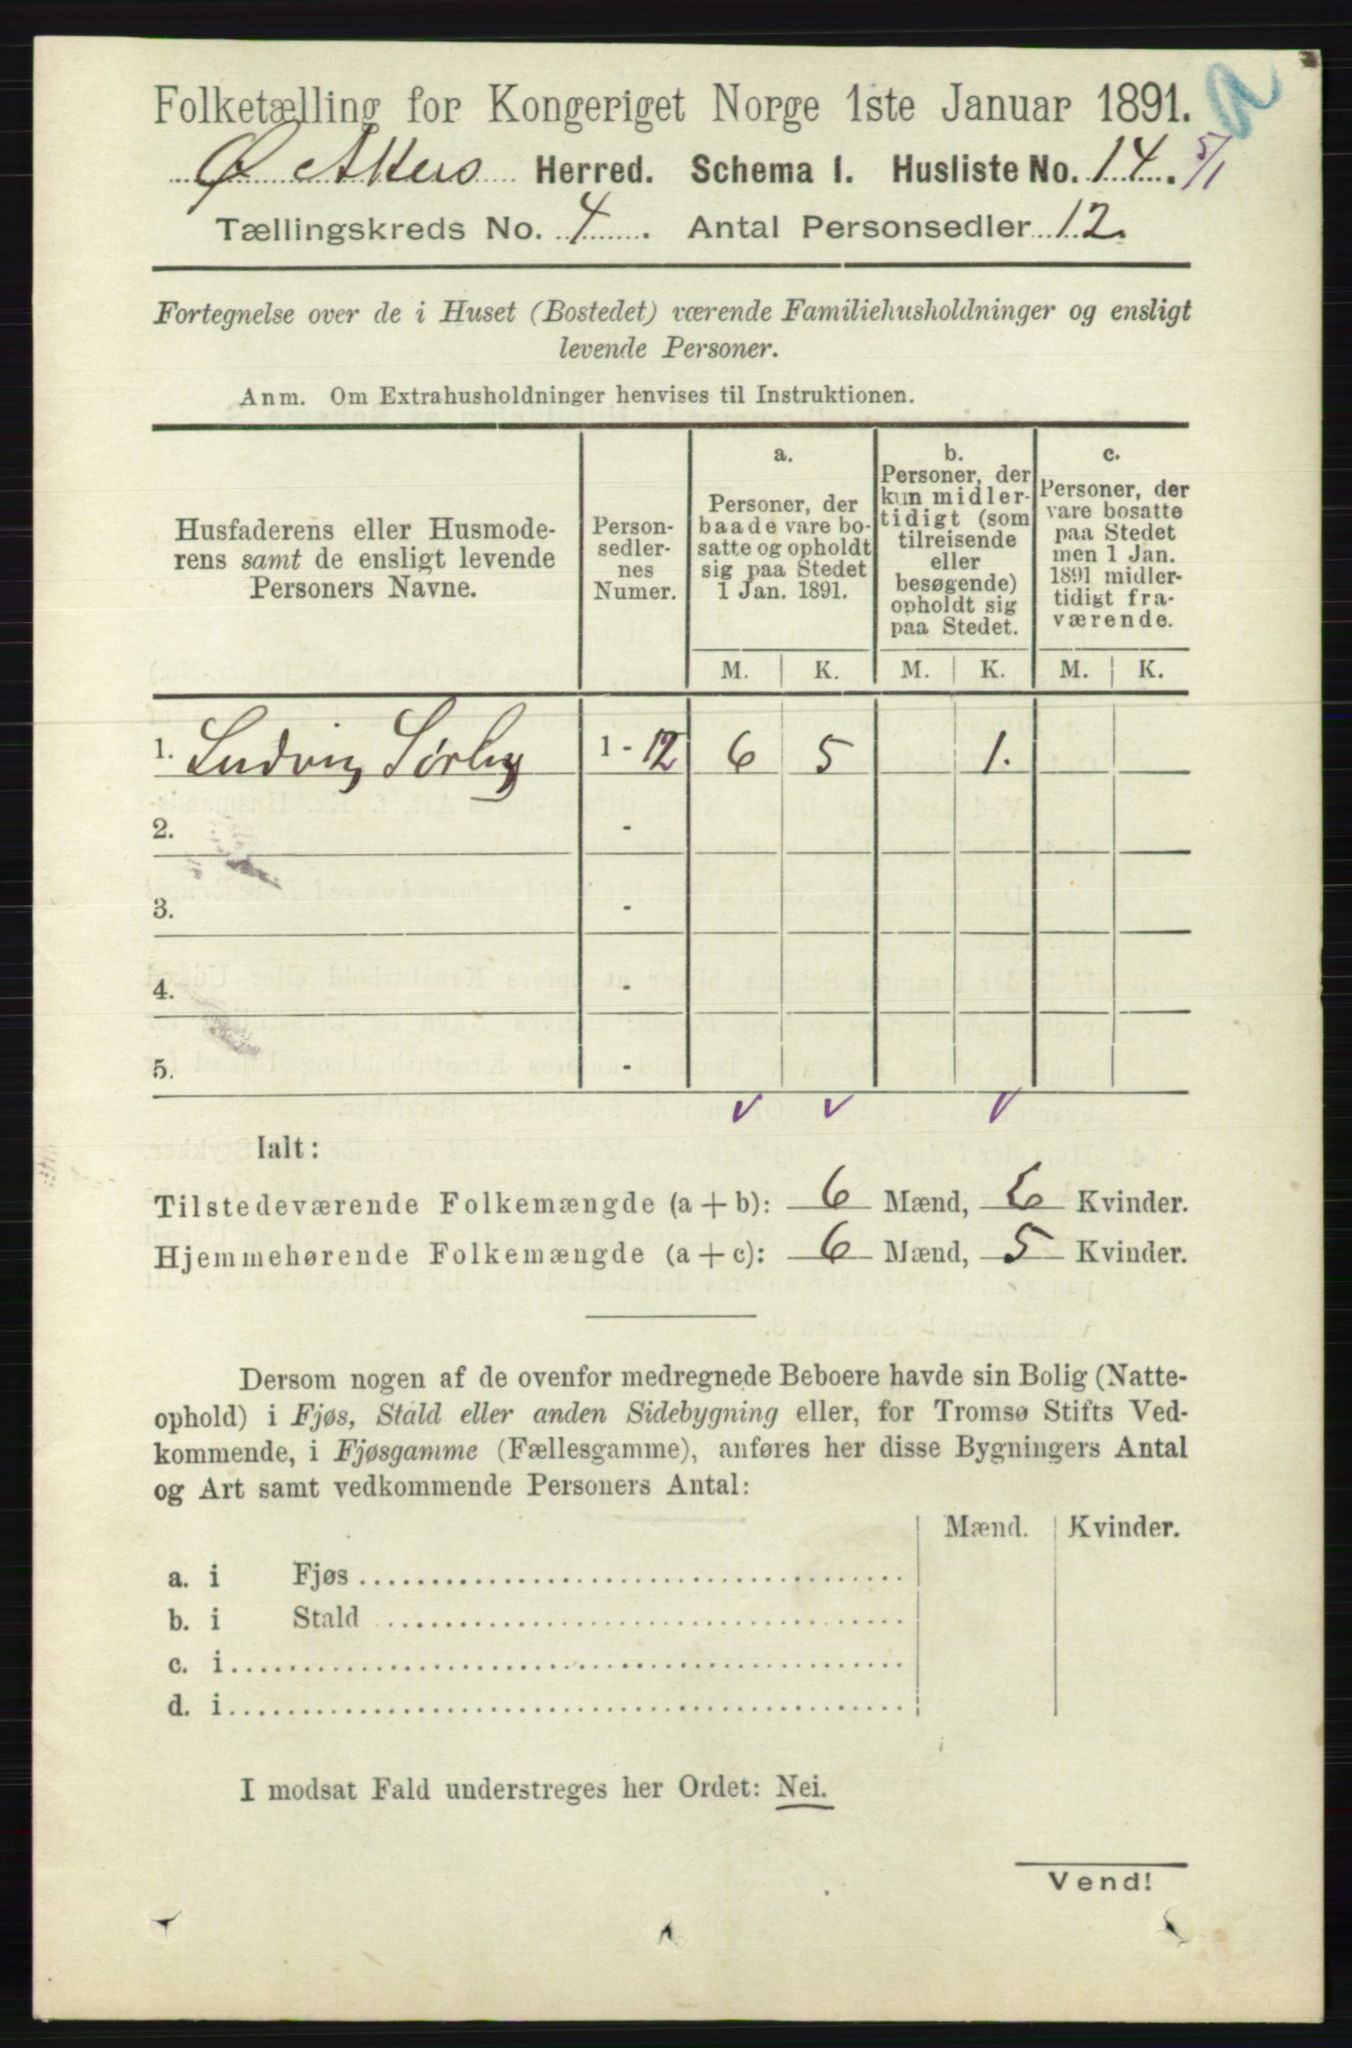 Folketælling for Kongeriget Norge 1ste Januar 1891.
Ø. Akers Herred. Schema 1. Husliste No. 14. 5/1
Tællingskreds No. 4. Antal Personsedler 12.
Fortegnelse over de i Huset (Bostedet) værende Familiehusholdninger og ensligt
levende Personer.
Anm. Om Extrahusholdninger henvises til Instruktionen.
Husfaderens eller Husmode-
rens samt de ensligt levende
Personers Navne.
Person-
sedler-
nes
Numer.
a.
Personer, der
baade vare bo-
satte og opholdt
sig paa Stedet
1 Jan. 1891.
b.
Personer, der
kun midler-
tidigt (som
tilreisende
eller
besøgende)
opholdt sig
paa Stedet.
c.
Personer, der
vare bosatte
paa Stedet
men 1 Jan.
1891 midler-
tidigt fra-
værende.
M. K. M. K. M. K.
1. Ludvig Sørby 1 - 12 6 5 1.
2. -
3. -
4. -
5. -
Ialt:
Tilstedeværende Folkemængde (a + b): 6 Mænd, 6 Kvinder.
Hjemmehørende Folkemængde (a + c): 6 Mænd, 5 Kvinder.
Dersom nogen af de ovenfor medregnede Beboere havde sin Bolig (Natte-
ophold) i Fjøs, Stald eller anden Sidebygning eller, for Tromsø Stifts Ved-
kommende, i Fjøsgamme (Fællesgamme), anføres her disse Bygningers Antal
og Art samt vedkommende Personers Antal:
Mænd. Kvinder.
a. i Fjøs
b. i Stald
c. i
d. i
I modsat Fald understreges her Ordet: Nei.
Vend!